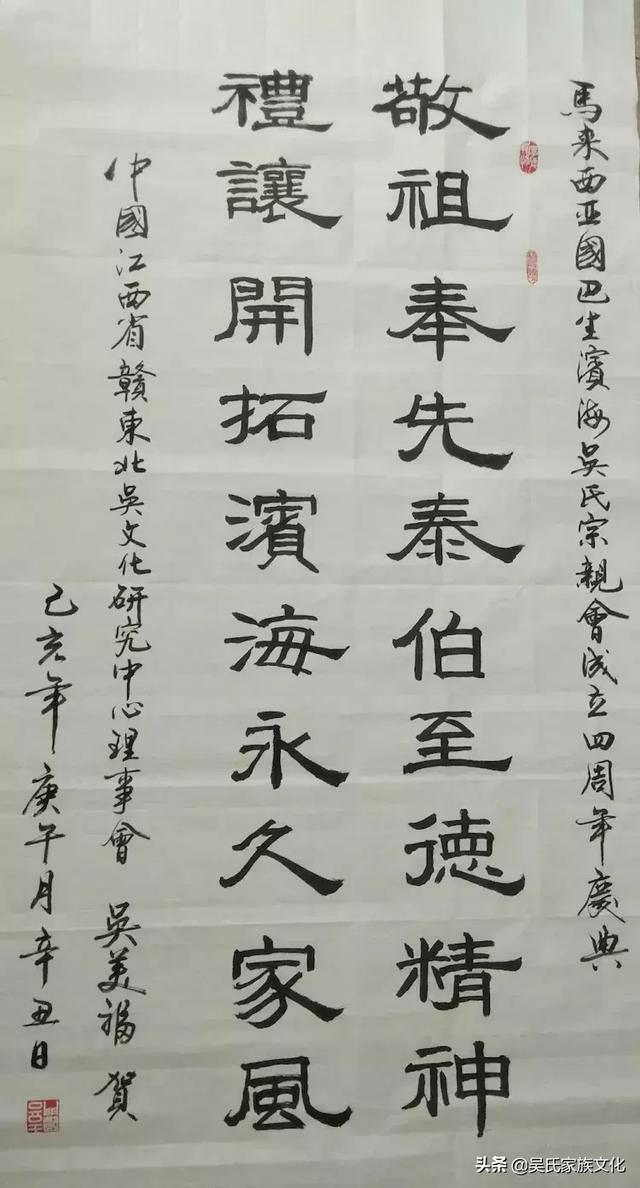 馬来西亚國巴生濱海吳氏宗親會成立四周年慶典
敬祖奉先泰伯至德精神
禮讓開拓濱海永久家風
中國江西省贛東北吳文化研究中心理事會 吳美福 賀
己亥年庚午月辛丑日
头条 @吴氏家族文化